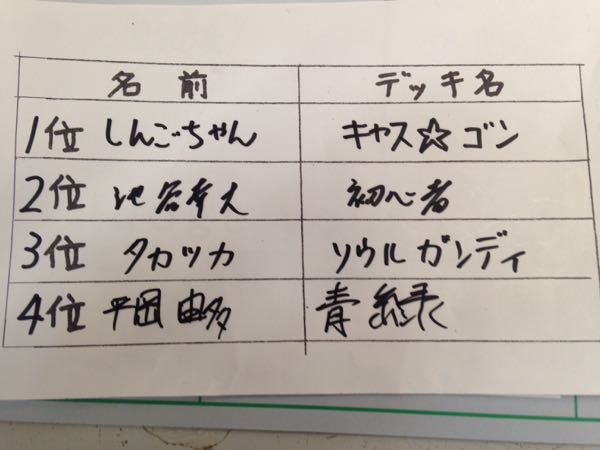 名前 デッキ名
1位 しんごちゃん キャス☆ゴン
2位 初心者
3位 タカツカ ソウルガンディ
4位 平岡 由多 青緑